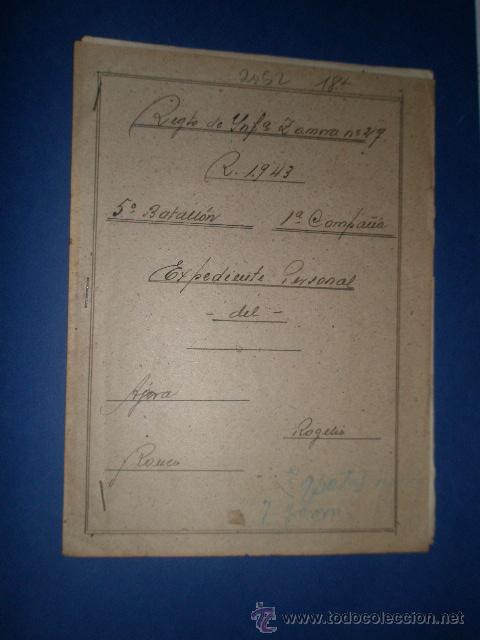 2052 184
Regto de Ynfa Zamora nº 29
R. 1.943
5º Batallón 1ª Compañía
Expediente Personal
- del -
Rogelio
7
todocoleccion
www.todocoleccion.net